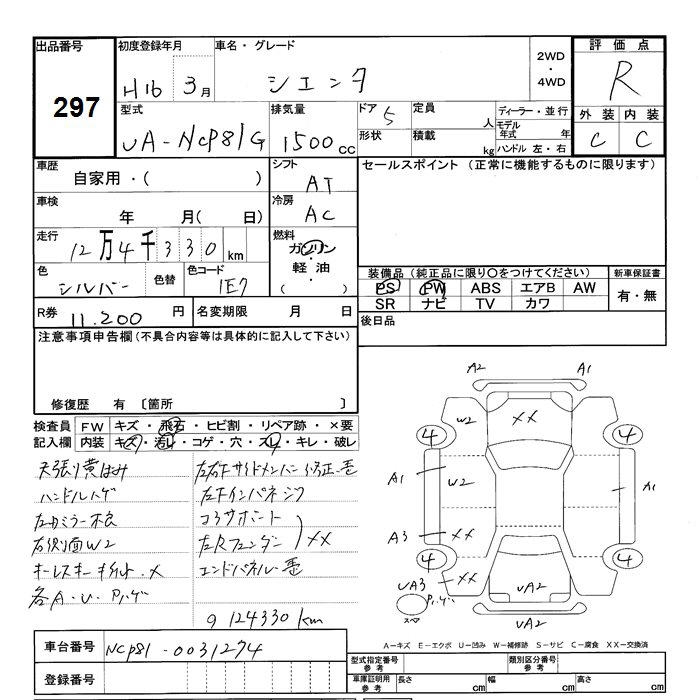 出品番号
297
初度登録年月
H16 3月
車名・グレード
シエンタ
2WD
・
4WD
評価点
R
型式
UA-NCP81G
排気量
1500cc
ドア 5
定員 人
ディーラー・並行
モデル年式 年
形状
積載 kg
ハンドル 左・右
外装 内装
C C
車歴
自家用・( )
シフト
AT
セールスポイント (正常に機能するものに限ります)
車検
年 月( 日)
冷房
AC
走行
12万4千330km
燃料
ガソリン
・
軽油
( )
色
シルバー
色替
色コード
1E7
装備品 (純正品に限り○をつけてください)
新車保証書
PS PW ABS エアB AW
有・無
SR ナビ TV カワ
R券 11.200 円
名変期限 月 日
後日品
注意事項申告欄 (不具合内容等は具体的に記入して下さい)
修復歴 有 〔箇所 〕
検査員記入欄
FW キズ・飛石・ヒビ割・リペア跡・×要
内装 キズ・汚れ・コゲ・穴・スレ・キレ・破レ
天張り黄ばみ
左右サイドメンバー修正 歪
ハンドルハゲ
左インパネジク
左ドアミラー不良
コアサポート
右側面W2
左Rフェンダー
XX
キーレスキー欠品 ×
エンドパネル 歪
各A・U・P ハゲ
124330km
A2 A1
W2 XX
4 4
A1 W2 A1
A3 XX
4 4
UA3 XX
P.ハゲ
スペア
UA2
UA2
A−キズ E−エクボ U−凹み W−補修跡 S−サビ C−腐食 XX−交換済
車台番号 NCP81-0031274
登録番号
型式指定番号
類別区分番号
車庫証明用参考
長さ cm
幅 cm
高さ cm